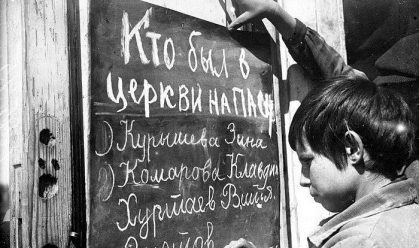 Кто был в
церкви на пасх
1) Курышева Зина
2) Комарова Клавдия
Хуртаев